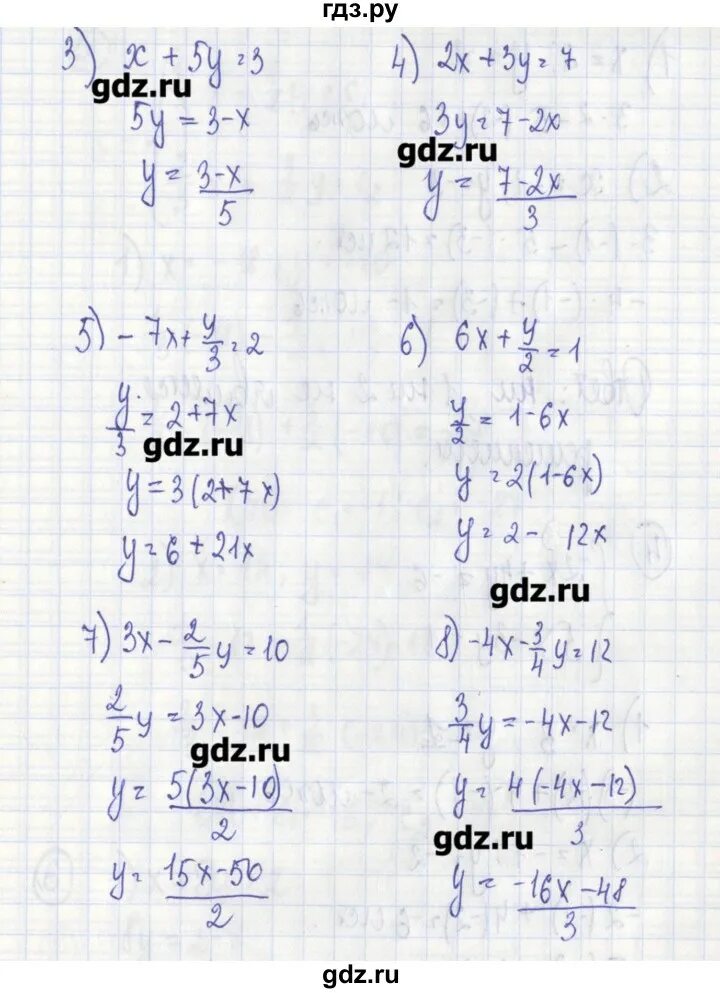 гдз.ру
3) x + 5y = 3
5y = 3-x
y = (3-x)/5
4) 2x + 3y = 7
3y = 7-2x
y = (7-2x)/3
gdz.ru
gdz.ru
5) -7x + y/3 = 2
y/3 = 2+7x
y = 3(2+7x)
y = 6 + 21x
6) 6x + y/2 = 1
y/2 = 1-6x
y = 2(1-6x)
y = 2 - 12x
gdz.ru
gdz.ru
7) 3x - 2/5 y = 10
2/5 y = 3x-10
y = 5(3x-10)/2
y = (15x-50)/2
8) -4x - 3/4 y = 12
3/4 y = -4x-12
y = 4(-4x-12)/3
y = (-16x-48)/3
gdz.ru
gdz.ru
gdz.ru